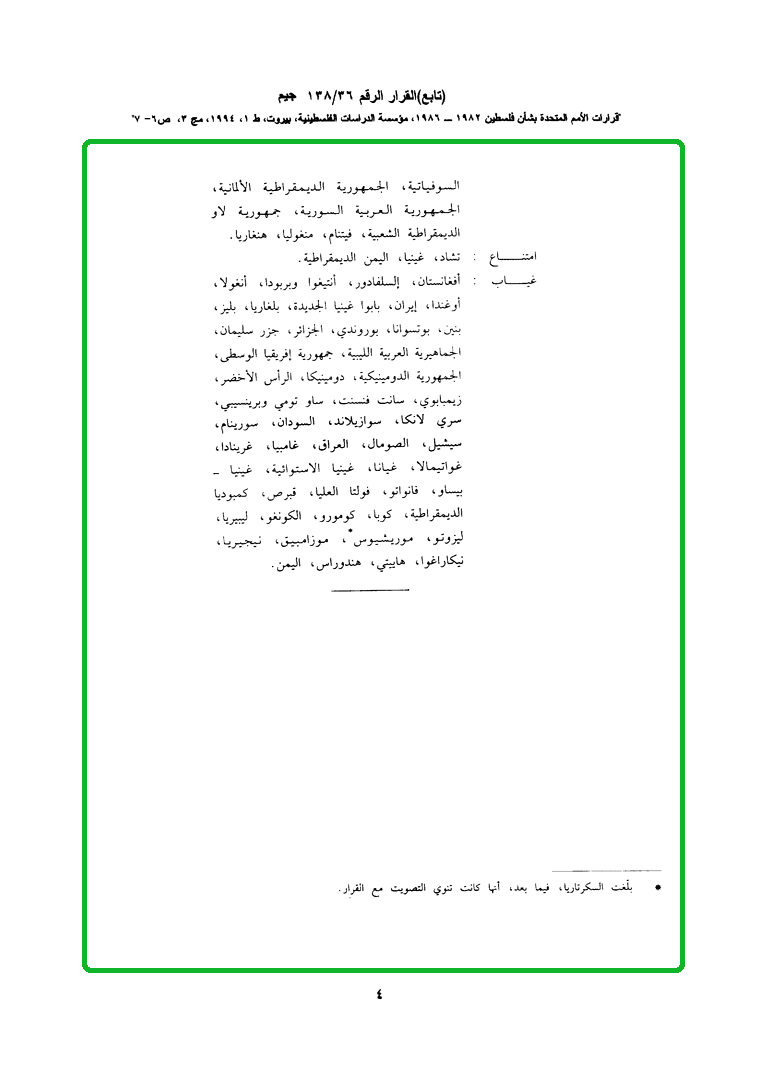 (تابع)القرار الرقم ١٣٨/٣٦ جيم
"قرارات الأمم المتحدة بشأن فلسطين ١٩٨٢ ــ ١٩٨٦، مؤسسة الدراسات الفلسطينية، بيروت، ط ١، ١٩٩٤، مج ٣، ص٦- ٧"
السوفياتية، الجمهورية الديمقراطية الألمانية،
الجمهورية العربية السورية، جمهورية لاو
الديمقراطية الشعبية، فيتنام، منغوليا، هنغاريا.
امتنـــاع : تشاد، غينيا، اليمن الديمقراطية.
غيـــاب : أفغانستان، إلسلفادور، أنتيغوا وبربودا، أنغولا،
أوغندا، إيران، بابوا غينيا الجديدة، بلغاريا، بليز،
بنين، بوتسوانا، بوروندي، الجزائر، جزر سليمان،
الجماهيرية العربية الليبية، جمهورية إفريقيا الوسطى،
الجمهورية الدومينيكية، دومينيكا، الرأس الأخضر،
زيمبابوي، سانت فنسنت، ساو تومي وبرينسيبي،
سري لانكا، سوازيلاند، السودان، سورينام،
سيشيل، الصومال، العراق، غامبيا، غرينادا،
غواتيمالا، غيانا، غينيا الاستوائية، غينيا ــ
بيساو، فانواتو، فولتا العليا، قبرص، كمبوديا
الديمقراطية، كوبا، كومورو، الكونغو، ليبيريا،
ليزوتو، موريشيوس*، موزامبيق، نيجيريا،
نيكاراغوا، هاييتي، هندوراس، اليمن.
* بلّغت السكرتاريا، فيما بعد، أنها كانت تنوي التصويت مع القرار.
٤